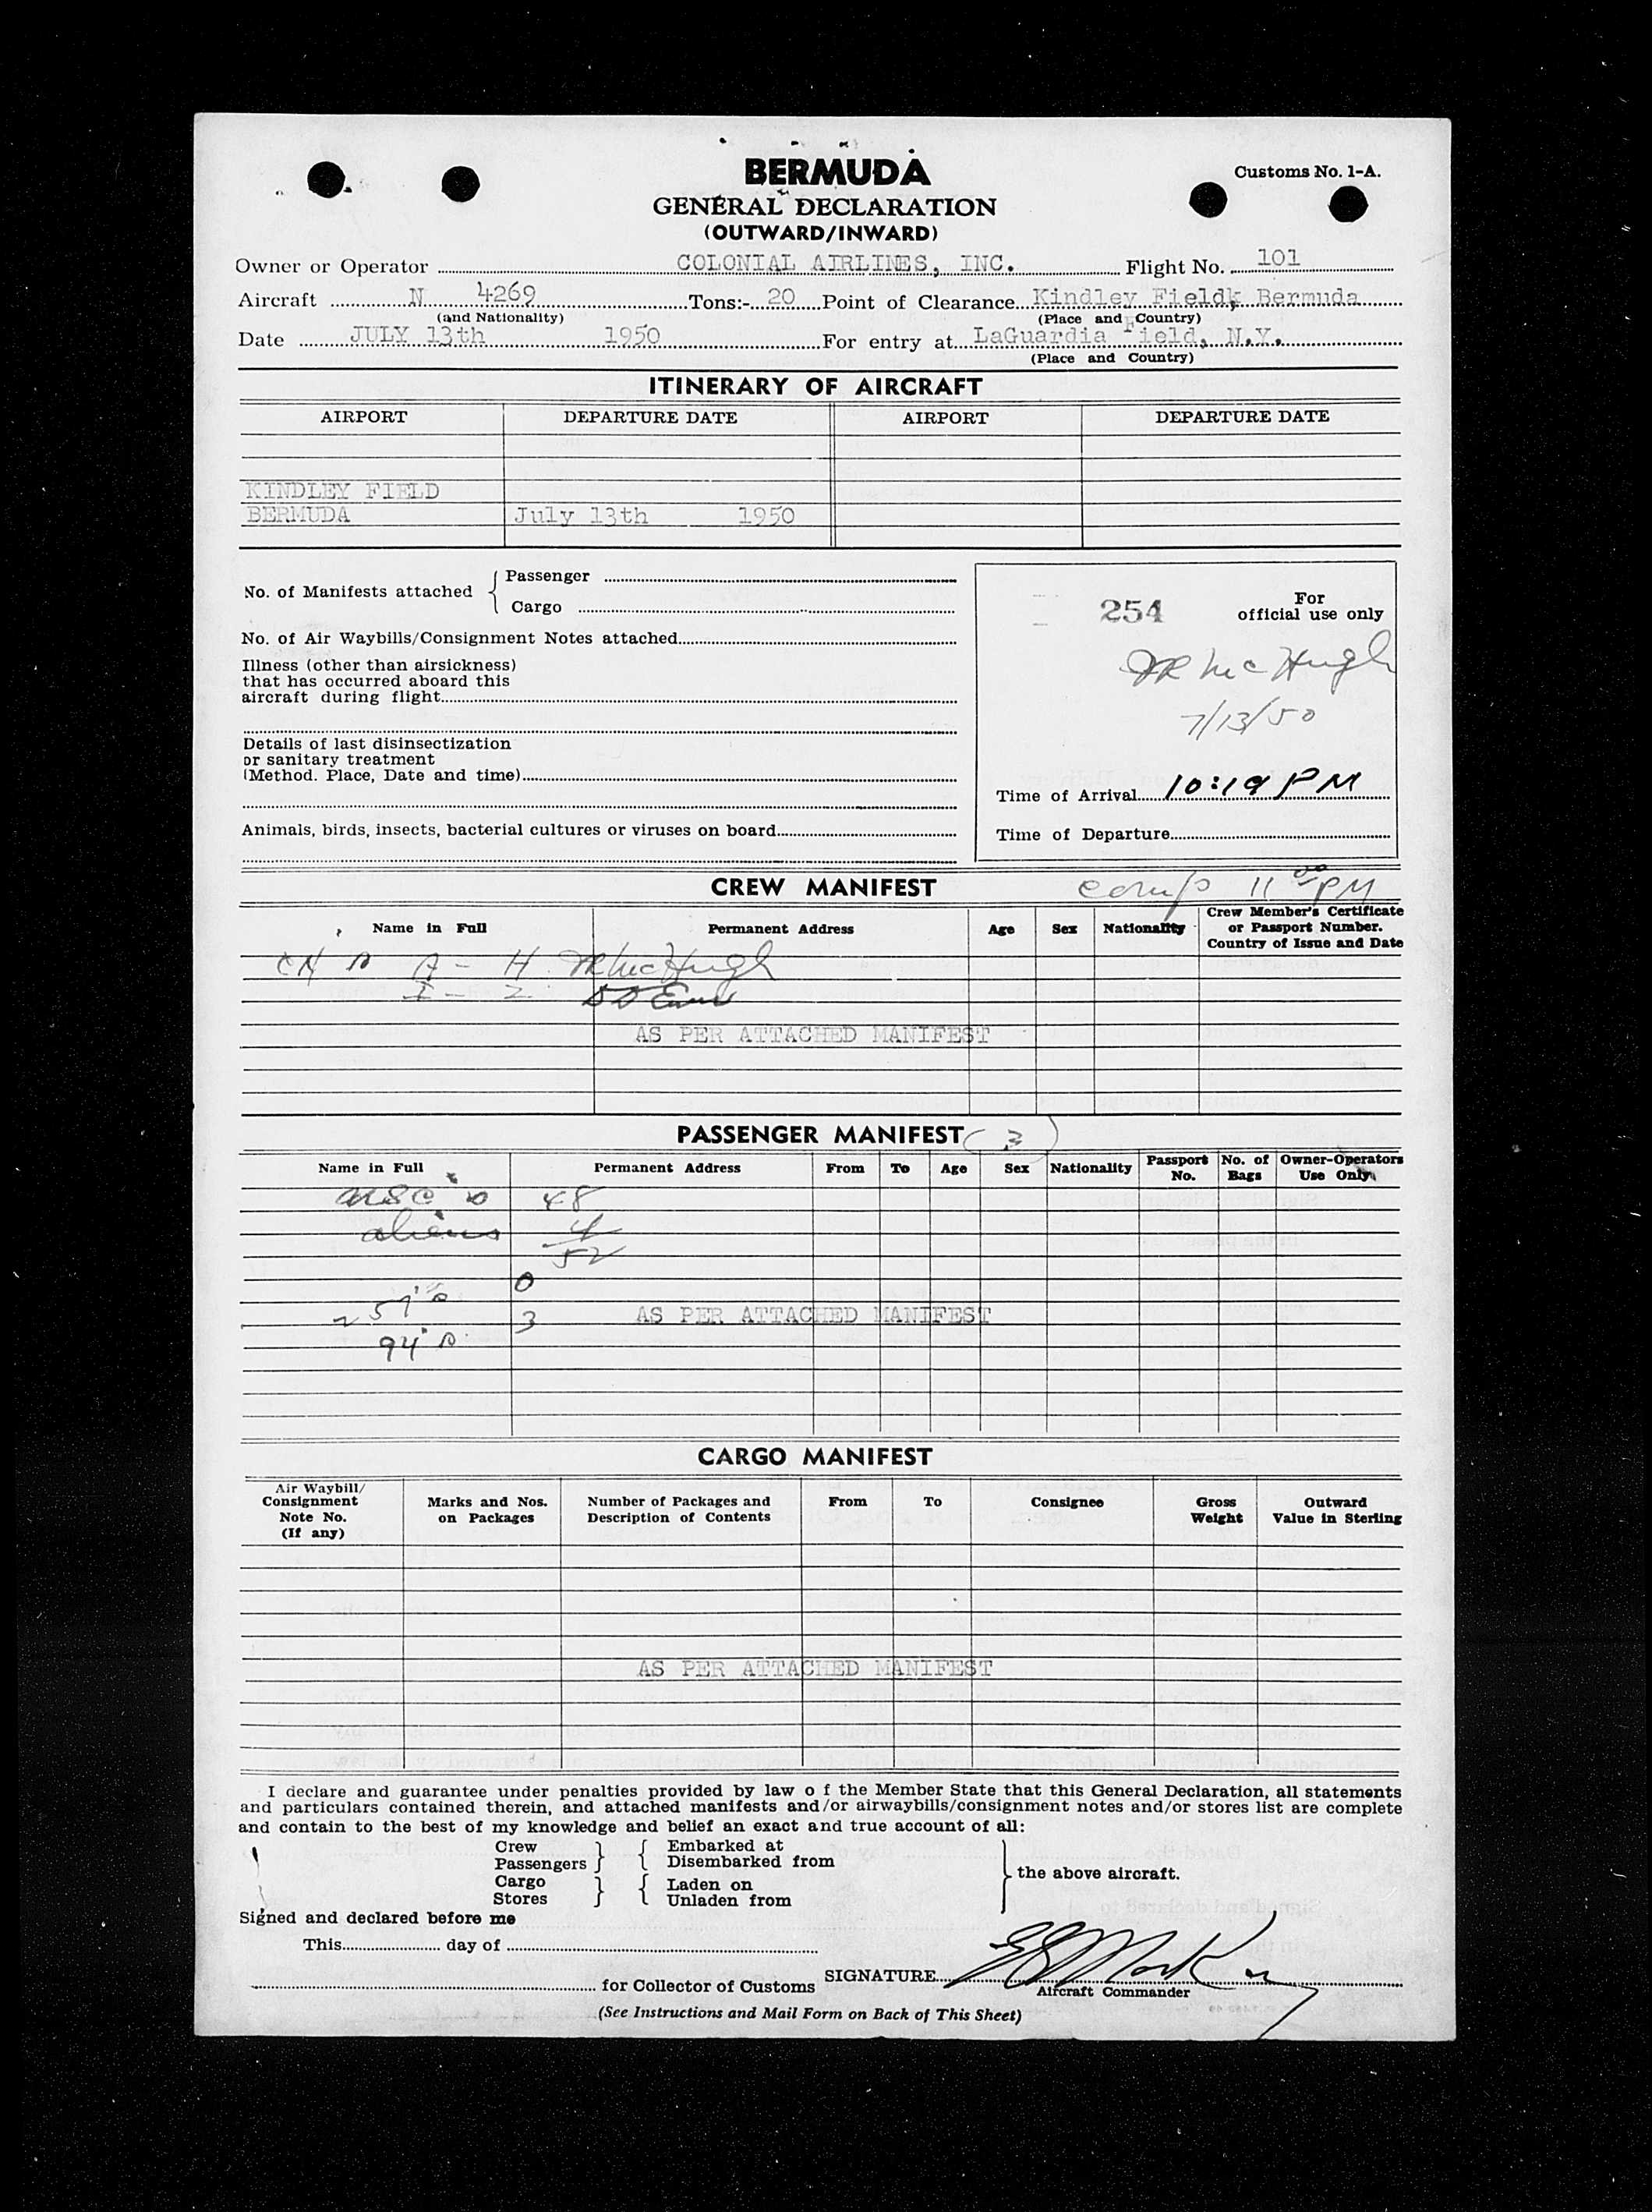 BERMUDA
Customs No. 1-A.
GENERAL DECLARATION
(OUTWARD/INWARD)
Owner or Operator COLONIAL AIRLINES, INC. Flight No. 101
Aircraft N 4269 Tons:- 20 Point of Clearance Kindley Field, Bermuda
(and Nationality) (Place and Country)
Date JULY 13th 1950 For entry at LaGuardia Field, N.Y.
(Place and Country)
ITINERARY OF AIRCRAFT
AIRPORT DEPARTURE DATE AIRPORT DEPARTURE DATE
KINDLEY FIELD
BERMUDA July 13th 1950
No. of Manifests attached { Passenger
Cargo
254 For
official use only
No. of Air Waybills/Consignment Notes attached
Illness (other than airsickness)
that has occurred aboard this
aircraft during flight
McHugh
7/13/50
Details of last disinsectization
or sanitary treatment
(Method. Place, Date and time)
Time of Arrival 10:19 PM
Animals, birds, insects, bacterial cultures or viruses on board
Time of Departure
CREW MANIFEST comp 11 00 PM
Name in Full Permanent Address Age Sex Nationality Crew Member's Certificate
or Passport Number.
Country of Issue and Date
A - H McHugh
I - Z
AS PER ATTACHED MANIFEST
PASSENGER MANIFEST (3)
Name in Full Permanent Address From To Age Sex Nationality Passport No. No. of Bags Owner-Operators Use Only
USC's 48
aliens 4
52
257's 0
94's 3
AS PER ATTACHED MANIFEST
CARGO MANIFEST
Air Waybill/
Consignment
Note No.
(If any)
Marks and Nos.
on Packages
Number of Packages and
Description of Contents
From To Consignee
Gross
Weight
Outward
Value in Sterling
AS PER ATTACHED MANIFEST
I declare and guarantee under penalties provided by law o f the Member State that this General Declaration, all statements
and particulars contained therein, and attached manifests and/or airwaybills/consignment notes and/or stores list are complete
and contain to the best of my knowledge and belief an exact and true account of all:
Crew } { Embarked at
Passengers } { Disembarked from
the above aircraft.
Cargo } { Laden on
Stores } { Unladen from
Signed and declared before me
This day of
for Collector of Customs SIGNATURE
Aircraft Commander
(See Instructions and Mail Form on Back of This Sheet)